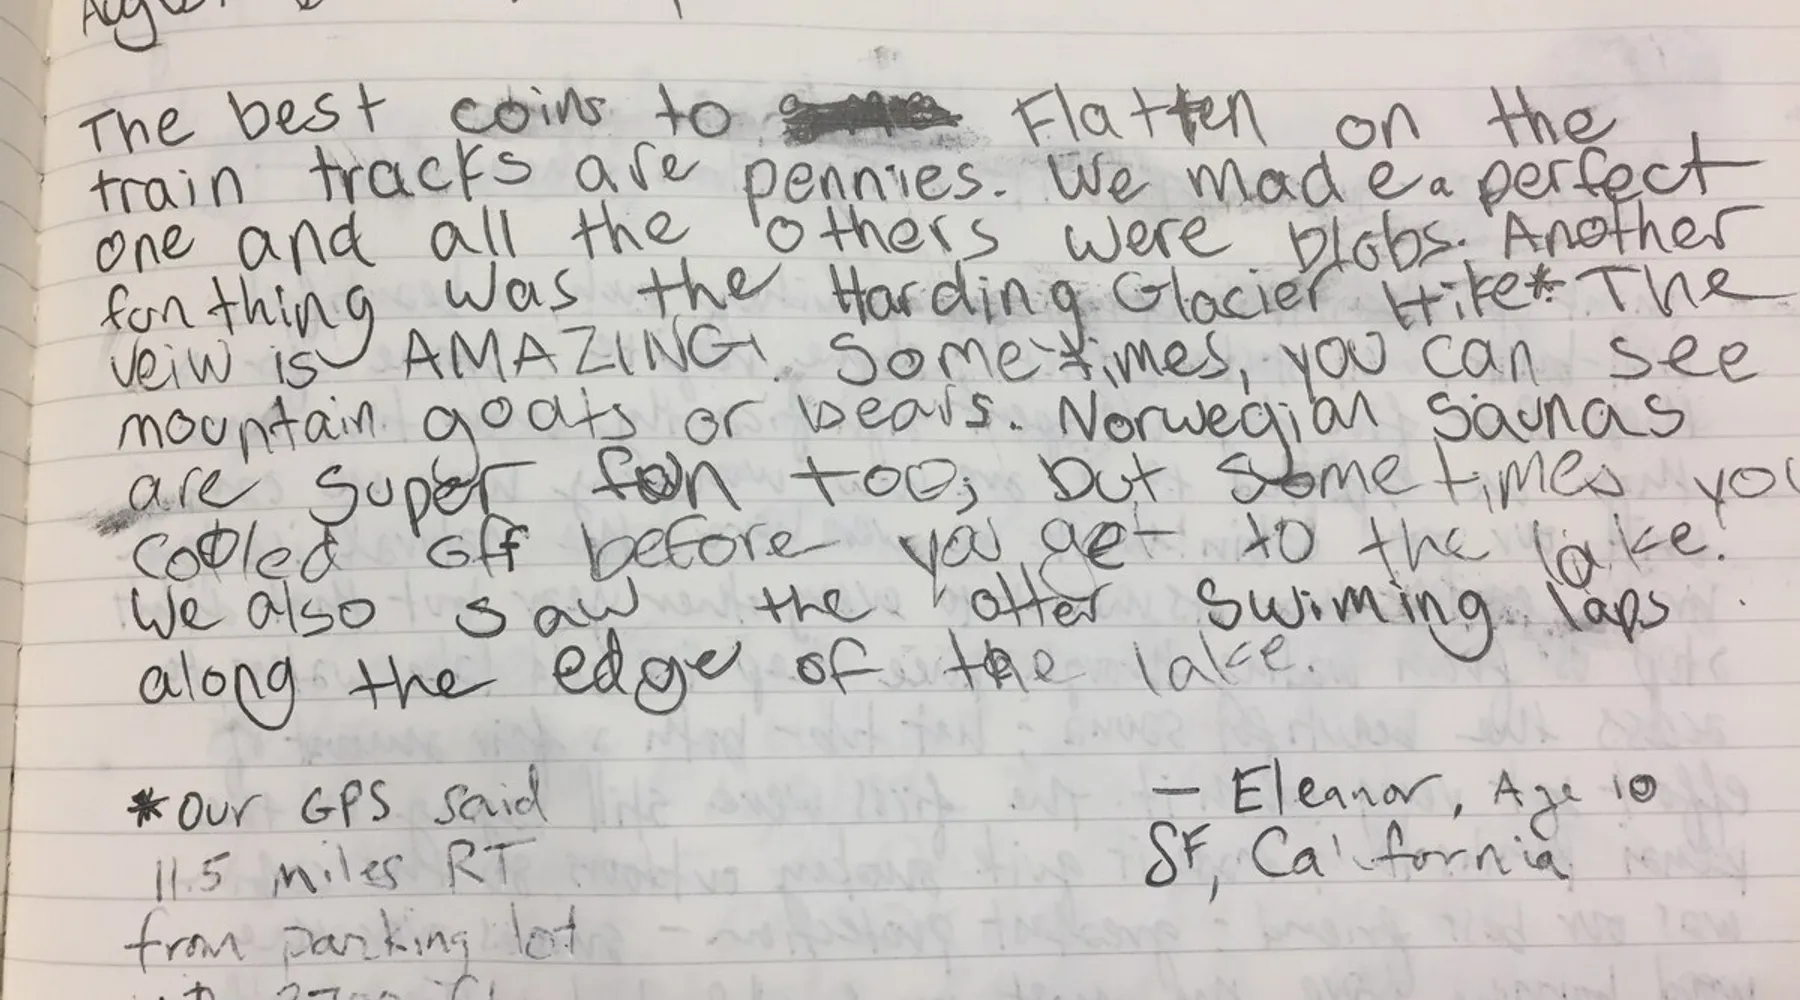 The best coins to Flatten on the
train tracks are pennies. We made a perfect
one and all the others were blobs. Another
fun thing was the Harding Glacier Hike* The
veiw is AMAZING! Sometimes, you can see
mountain goats or bears. Norwegian Saunas
are super fun too, but sometimes you
cooled off before you get to the lake!
We also saw the otter swiming laps
along the edge of the lake.
— Eleanor, Age 10
SF, California
*Our GPS said
11.5 miles RT
from parking lot